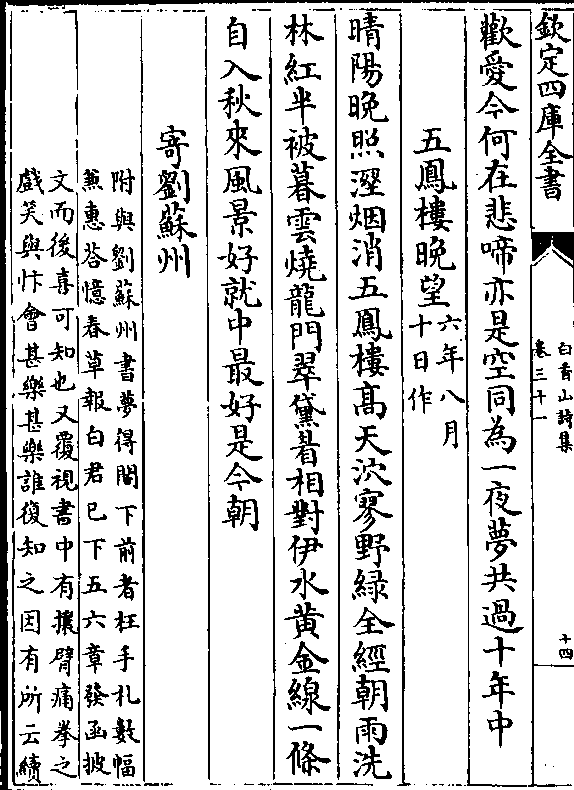 欽定四庫全書
白香山詩集
卷三十一
十四
歡愛今何在悲啼亦是空同為一夜夢共過十年中
五鳳樓晚望
六年八月
十日作
晴陽晚照溼烟消五鳳樓髙天泬寥野緑全經朝雨洗
林紅半被暮雲燒龍門翠黛眉相對伊水黄金線一條
自入秋來風景好就中最好是今朝
寄劉蘇州
附與劉蘇州書夢得閣下前者枉手札數幅
兼惠答憶春草報白君已下五六章發函披
文而後喜可知也又覆視書中有攘臂痛拳之
戲笑與忭會甚樂甚樂誰復知之因有所云續